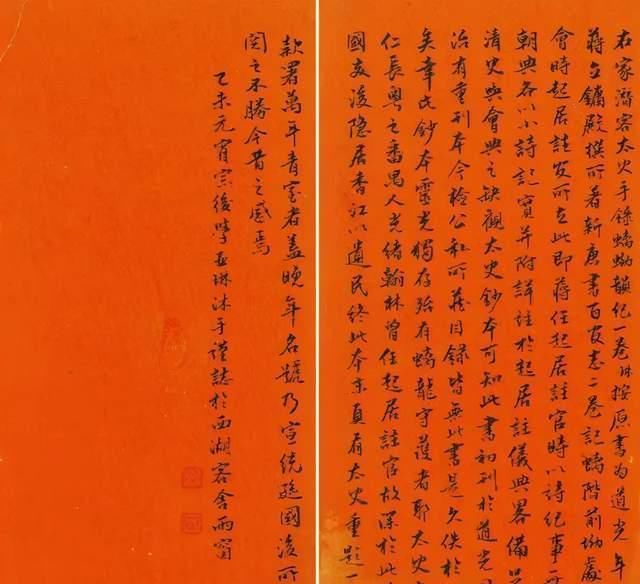 右家潛客太史手錄螭坳韻紀一卷琳按原書為道光年
蔣立鏞殿撰所著新唐書百官志二卷記螭階前坳處
會時起居註官所立此即蔣任起居註官時以詩紀事
朝典各以小詩記實并附詳註於起居註儀典畧備
清史與會典之缺觀太史鈔本可知此書初刊於道光
治有重刊本今檢公私所藏目錄皆無此書是久佚於
矣幸此鈔本靈光獨存殆有螭龍守護者耶太史
仁長粵之番禺人光緒翰林曾任起居註官故深於此
國變後隱居香江以遺民終此本末頁有太史重題一
款署萬年青室者蓋晚年名號乃宣統遜國後所
閱之不勝今昔之感焉
乙未元宵宗後學亞琳沐手謹誌於西湖客舍雨窗